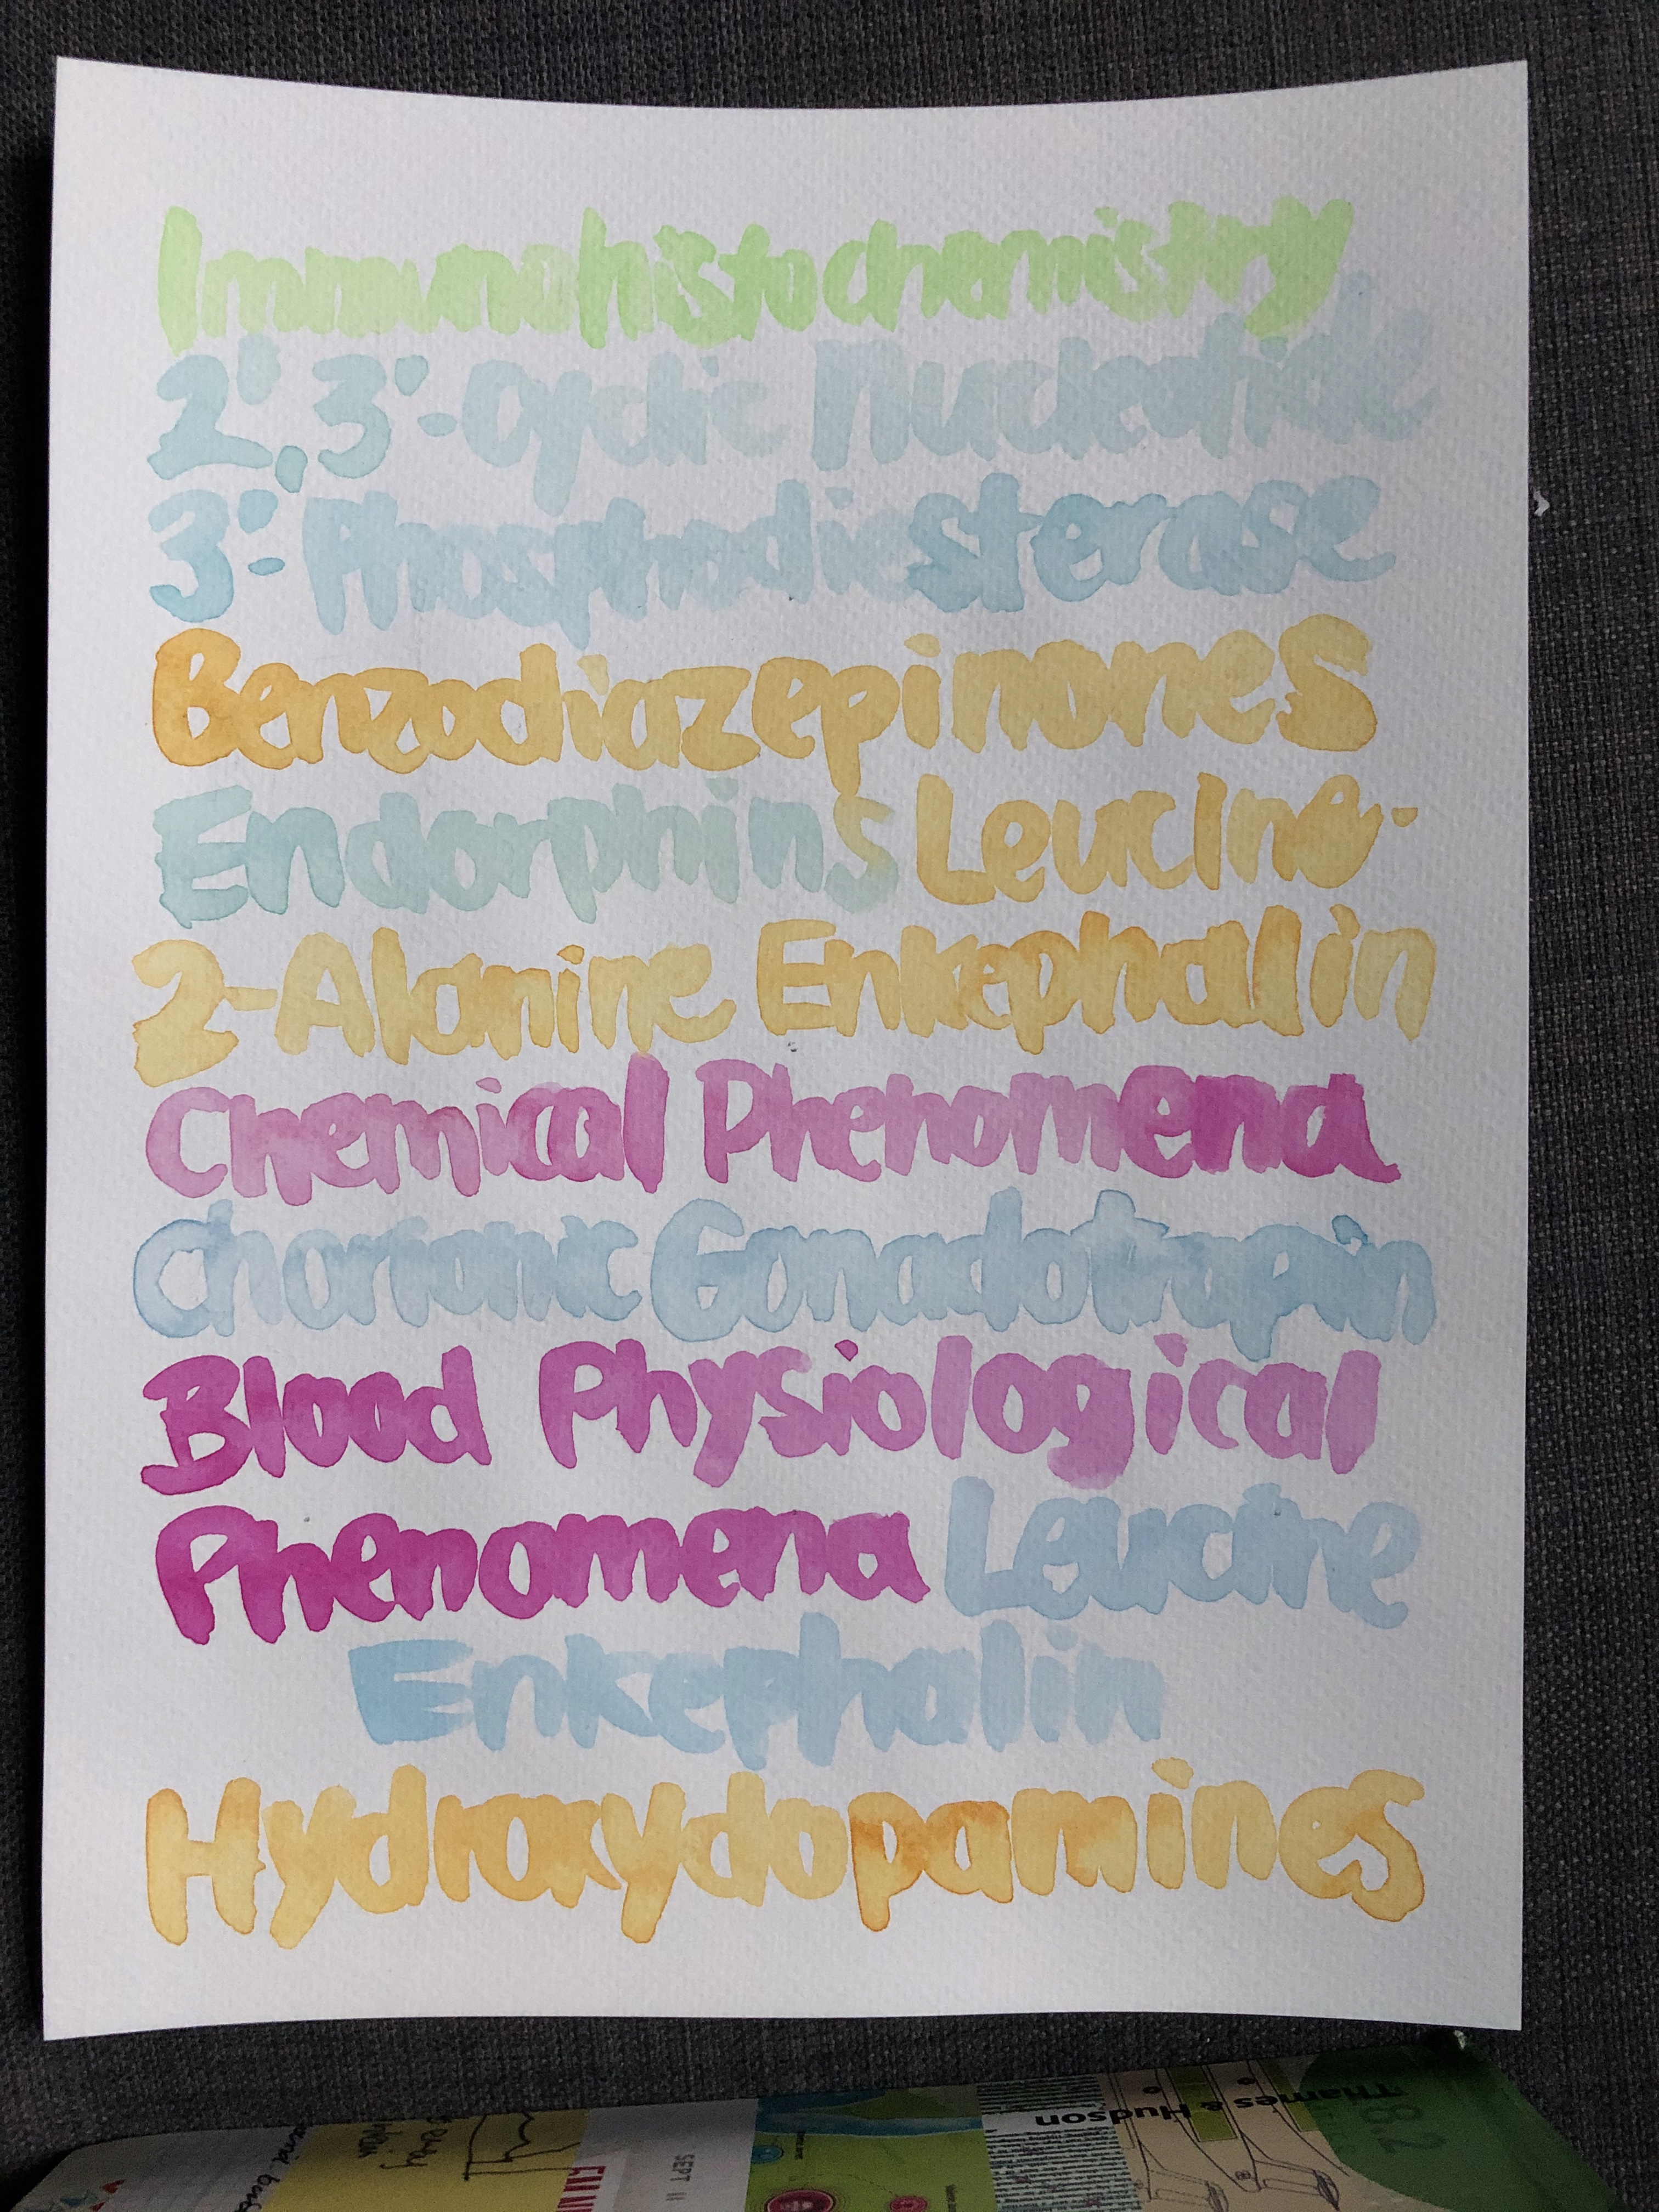 Immunohistochemistry
2',3'-Cyclic Nucleotide
3'-Phosphodiesterase
Benzodiazepinones
Endorphins Leucine-
2-Alanine Enkephalin
Chemical Phenomena
Chorionic Gonadotropin
Blood Physiological
Phenomena Leucine
Enkephalin
Hydroxydopamines
Thames & Hudson
8.2
SEPT 11